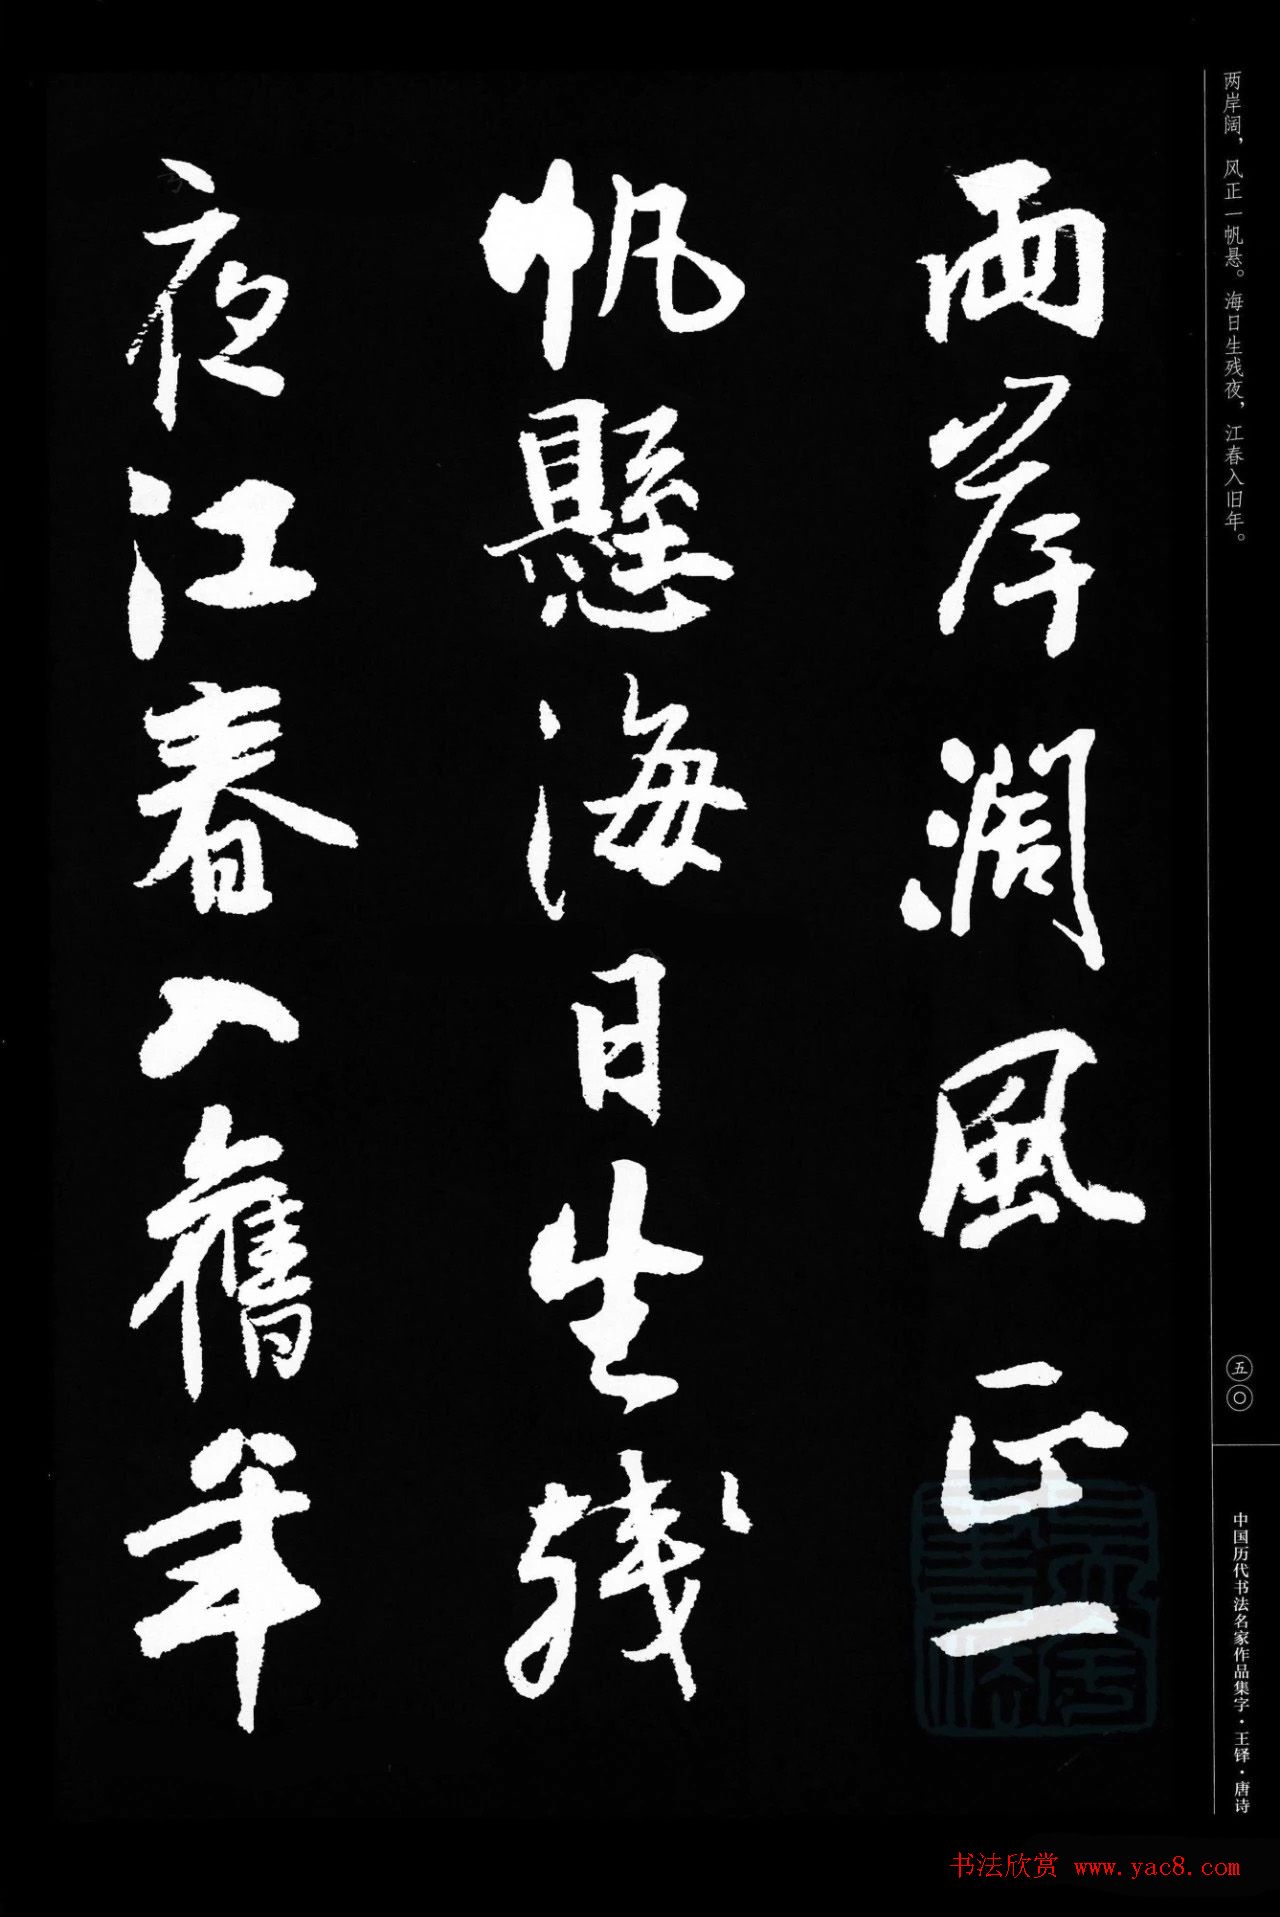 两岸阔，风正一帆悬。海日生残夜，江春入旧年。
兩岸濶風正一
帆懸海日生残
夜江春入舊年
五〇
中国历代书法名家作品集字·王铎·唐诗
书法欣赏 www.yac8.com